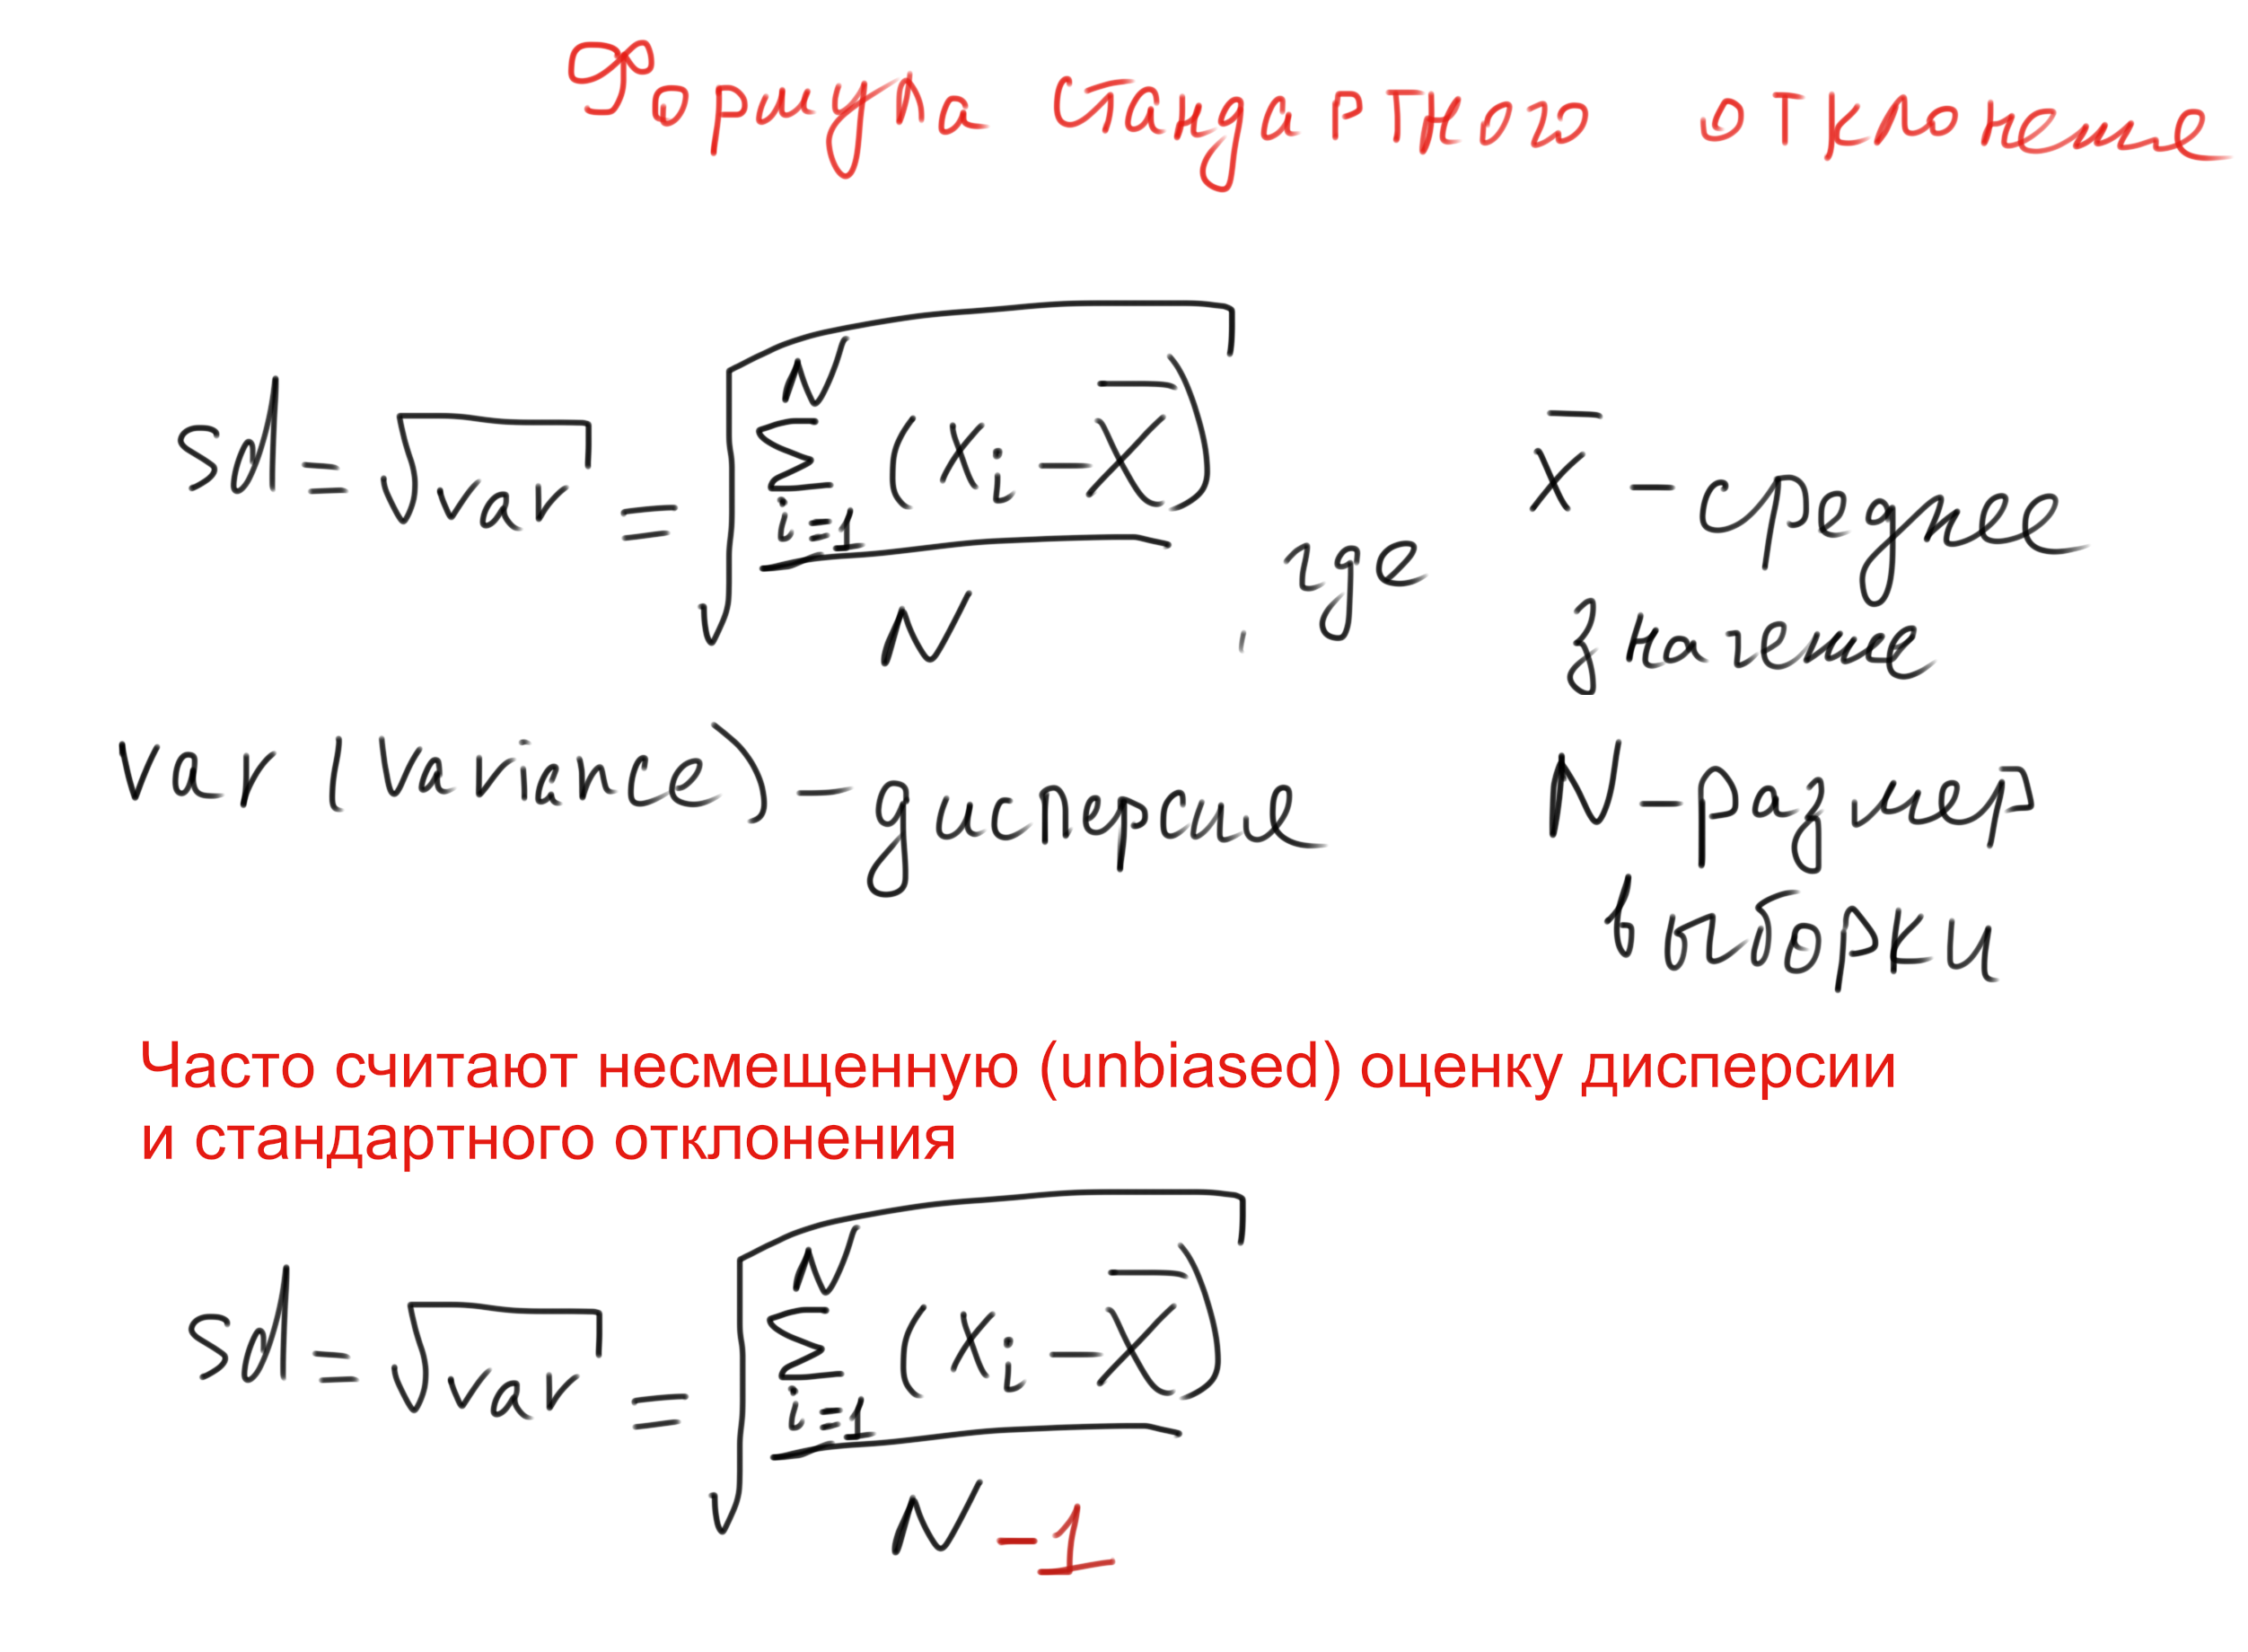 Формула стандартного отклонение
sd = √var = √(∑_{i=1}^{N} (x_i - x̄) / N), где
x̄ - среднее
значение
var (variance) - дисперсие
N - размер
выборки
Часто считают несмещенную (unbiased) оценку дисперсии
и стандартного отклонения
sd = √var = √(∑_{i=1}^{N} (x_i - x̄) / N - 1)